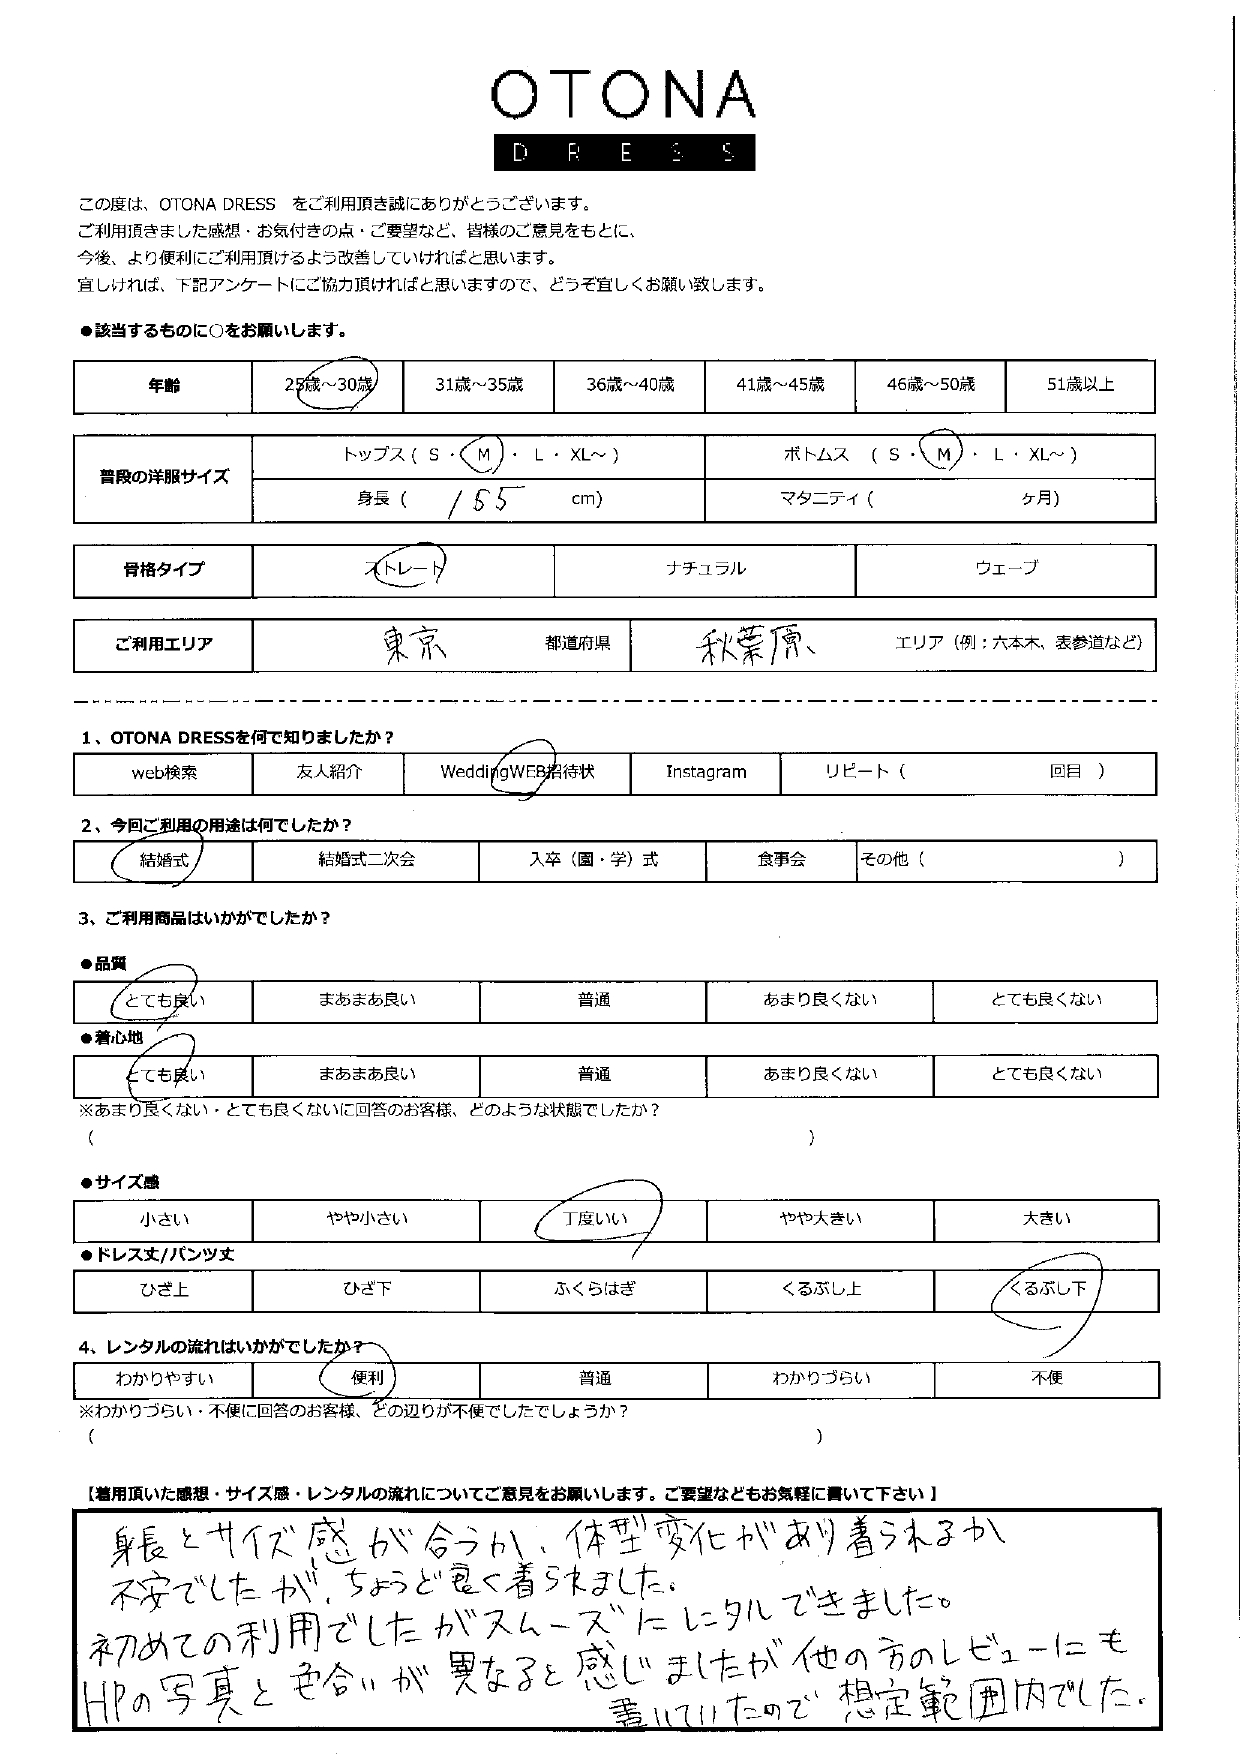 OTONA
DRESS
この度は、OTONA DRESS　をご利用頂き誠にありがとうございます。
ご利用頂きました感想・お気付きの点・ご要望など、皆様のご意見をもとに、
今後、より便利にご利用頂けるよう改善していければと思います。
宜しければ、下記アンケートにご協力頂ければと思いますので、どうぞ宜しくお願い致します。
●該当するものに○をお願いします。
年齢 25歳～30歳 31歳～35歳 36歳～40歳 41歳～45歳 46歳～50歳 51歳以上
普段の洋服サイズ トップス ( S ・ M ・ L ・ XL～ ) ボトムス ( S ・ M ・ L ・ XL～ )
身長 ( 155 cm) マタニティ ( ヶ月)
骨格タイプ ストレート ナチュラル ウェーブ
ご利用エリア 東京 都道府県 秋葉原、 エリア（例：六本木、表参道など）
1、OTONA DRESSを何で知りましたか？
web検索 友人紹介 WeddingWEB招待状 Instagram リピート（ 回目 ）
2、今回ご利用の用途は何でしたか？
結婚式 結婚式二次会 入卒（園・学）式 食事会 その他（ ）
3、ご利用商品はいかがでしたか？
●品質
とても良い まあまあ良い 普通 あまり良くない とても良くない
●着心地
とても良い まあまあ良い 普通 あまり良くない とても良くない
※あまり良くない・とても良くないに回答のお客様、どのような状態でしたか？
（ ）
●サイズ感
小さい やや小さい 丁度いい やや大きい 大きい
●ドレス丈/パンツ丈
ひざ上 ひざ下 ふくらはぎ くるぶし上 くるぶし下
4、レンタルの流れはいかがでしたか？
わかりやすい 便利 普通 わかりづらい 不便
※わかりづらい・不便に回答のお客様、どの辺りが不便でしたでしょうか？
（ ）
【着用頂いた感想・サイズ感・レンタルの流れについてご意見をお願いします。ご要望などもお気軽に書いて下さい 】
身長とサイズ感が合うか、体型変化があり着られるか
不安でしたが、ちょうど良く着られました。
初めての利用でしたがスムーズにレンタルできました。
HPの写真と色合いが異なると感じましたが他の方のレビューにも
書いていたので想定範囲内でした。